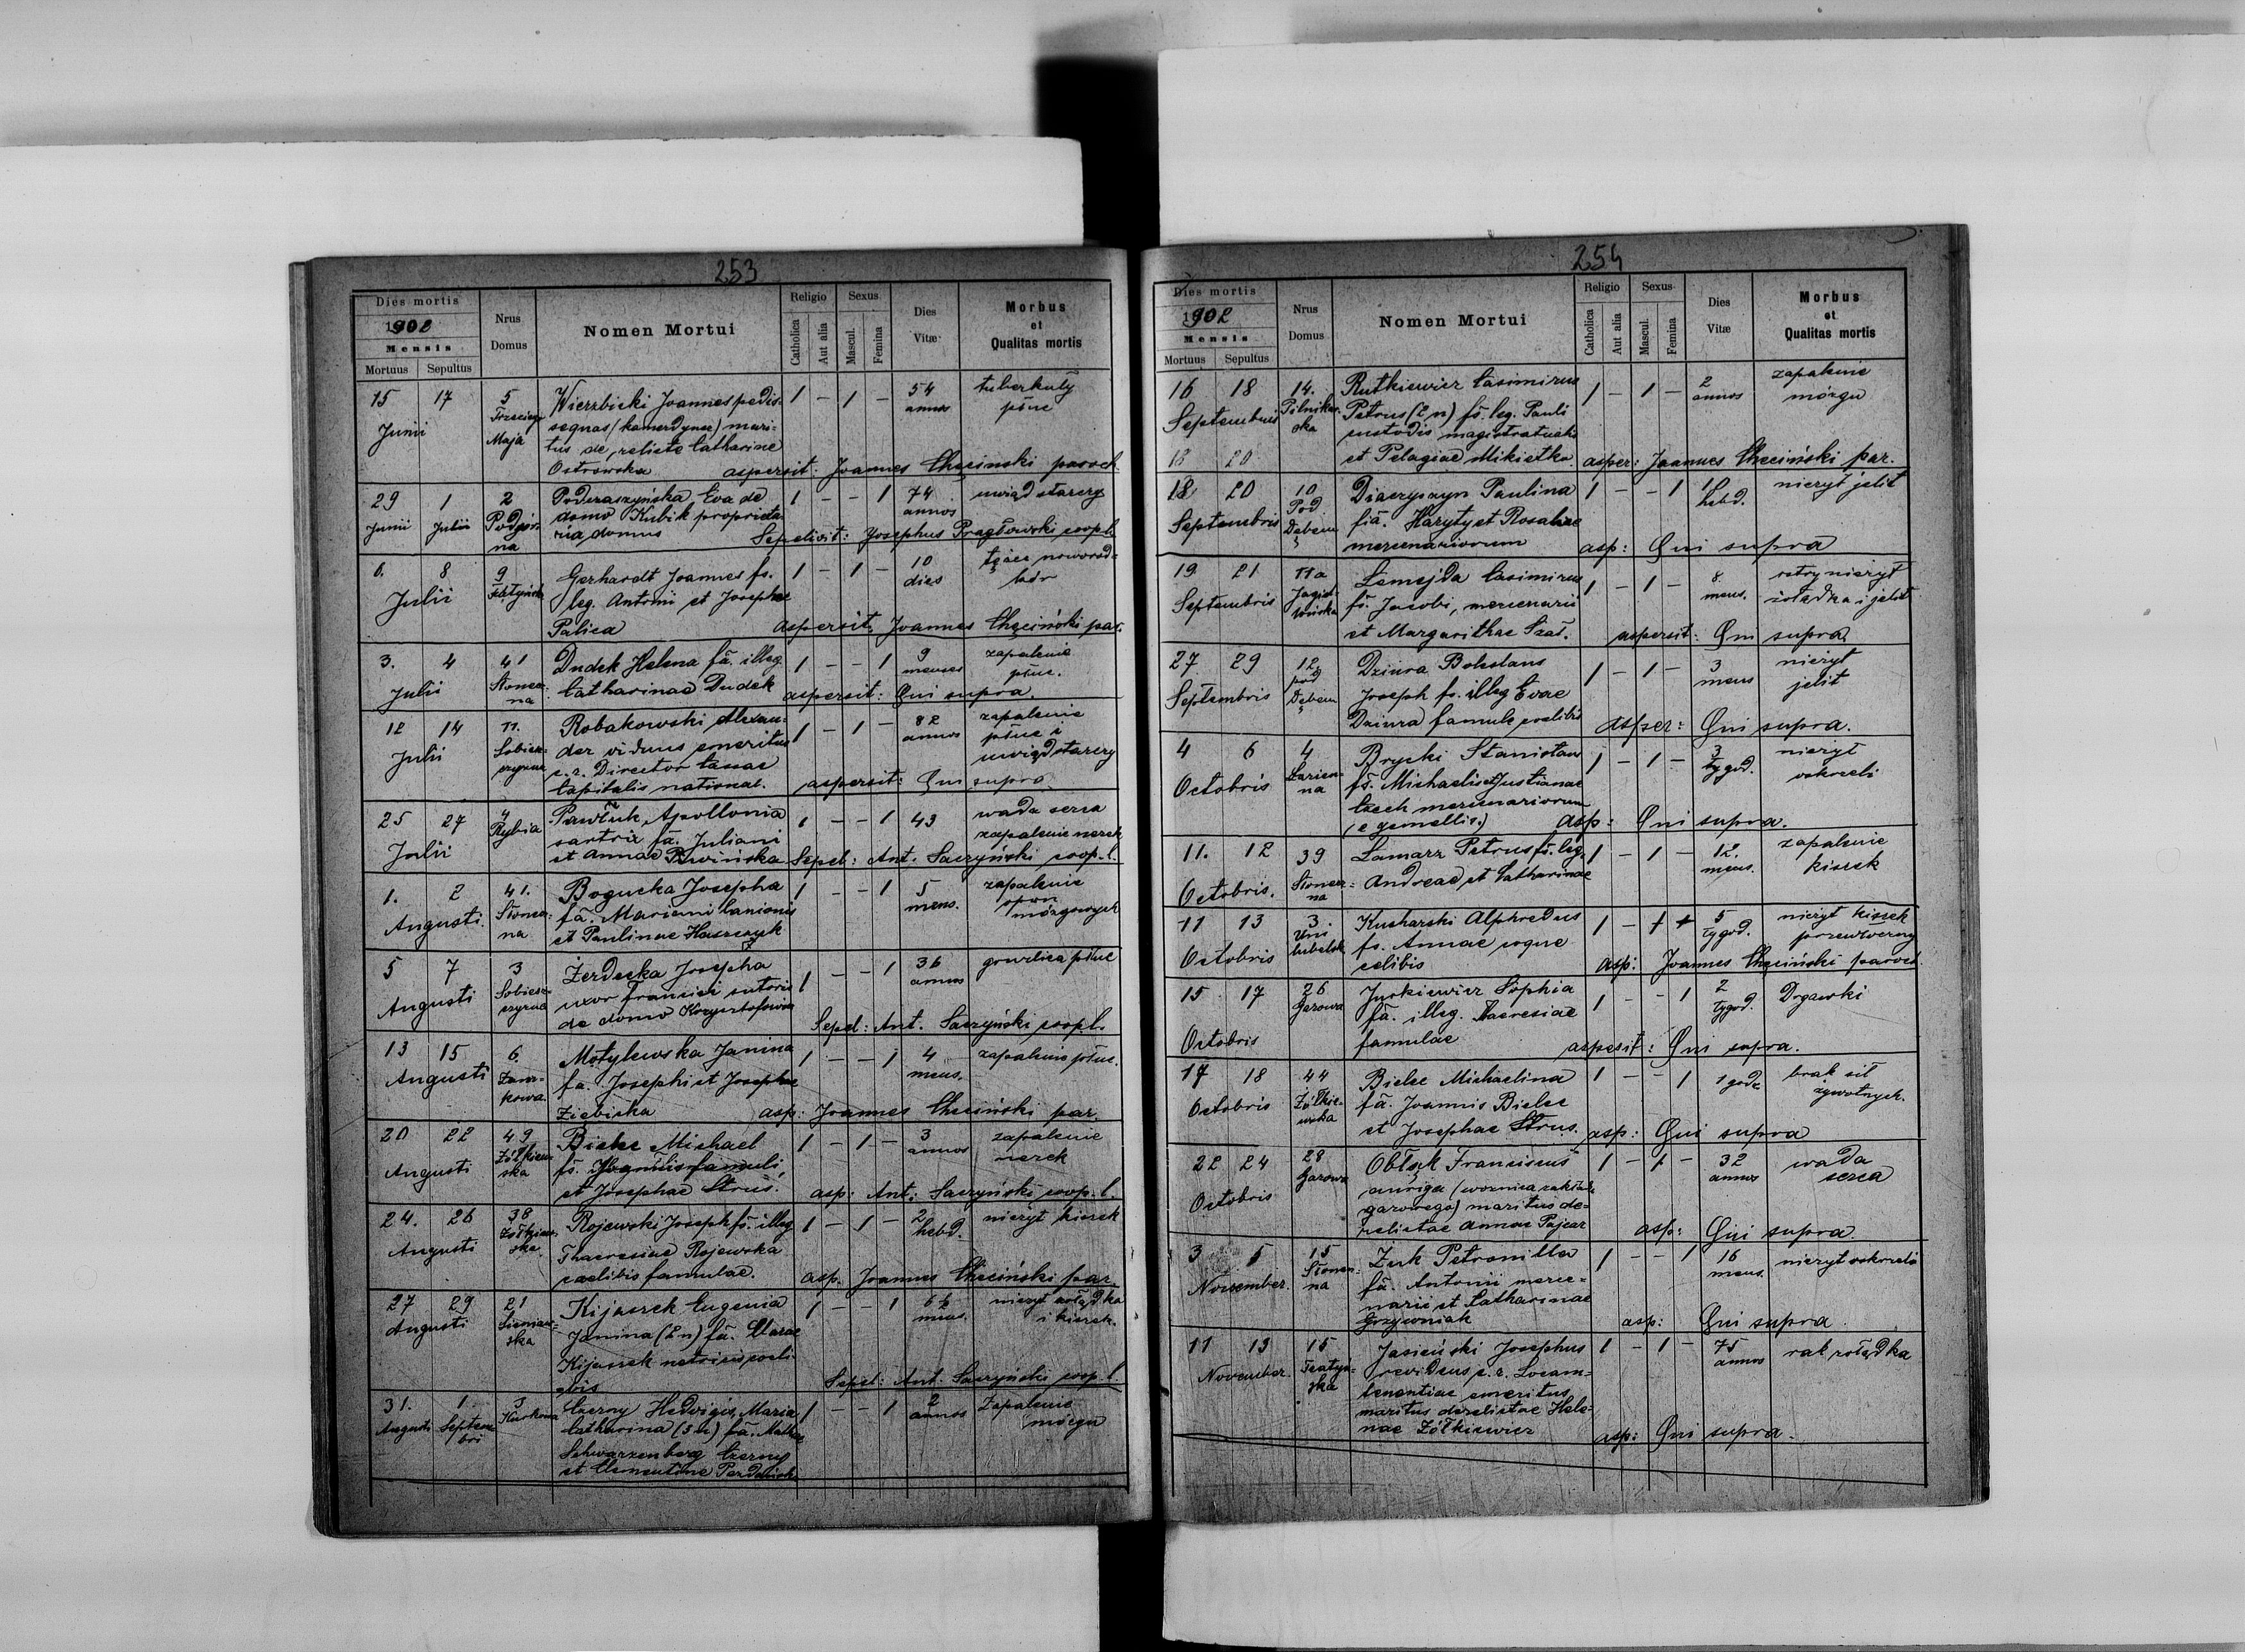 253
Dies mortis
1902
Mensis
Mortuus Sepultus
Nrus Domus
Nomen Mortui
Religio
Catholica Aut alia
Sexus
Mascul. Femina
Dies Vitæ
Morbus et Qualitas mortis
15 17 5 Wierzbicki Joannes pedis= 1 – 1 – 54 tuberkuły
Junii Trzeciego Maja sequas (kamerdyner) mari= annos płuc
tus de relicte Catharinae
Ostrowska aspersit: Joannes Chęciński paroch.
29 1 2 Podraszyńska Eva de 1 – – 1 74 uwiąd starczy
Junii Julii Podgór= domo Kubik proprieta annos
na ria domus Sepelivit: Josephus Pragłowski coop.
6. 8 9 Gerhardt Joannes fs. 1 – 1 – 10 tężec noworod=
Julii leg. Antonii et Josephae dies ków
Palica aspersit: Joannes Chęciński par.
3. 4 41 Dudek Helena fa. illeg. 1 – – 1 9 zapalenie
Julii Słonecz= Catharinae Dudek menses płuc.
na aspersit: Qui supra.
12 14 11. Robakowski Alexan= 1 – 1 – 82 zapalenie
Julii der viduus emeritus annos płuc i
c. r. Director cassae uwiąd starczy
Capitalis national. aspersit: Qui supra
25 27 4 Pawluk Apollonia 1 – – 1 43 wada serca
Julii Rybia sartrix fa. Juliani zapalenie nerek
et Annae Sepel: Ant. Saczyński coop. l.
1. 2 41. Bogucka Josepha 1 – – 1 5 zapalenie
Augusti. Słonecz= fa. Mariani lanionis mens. opon
na et Paulinae Haszczyk mózgowych
5 7 3 Żerdecka Josepha 1 – – 1 36 gruźlica płuc
Augusti uxor Francisci sutoris annos
de domo Krzysztofowicz Sepel: Ant. Saczyński coop. l.
13 15 6 Motylewska Janina 1 – – 1 4 zapalenie płuc.
Augusti Zam= fa. Josephi et Josephae mens.
kowa Ziębicka asp: Joannes Chęciński par.
20 22 49 Bielec Michael 1 – 1 – 3 zapalenie
Augusti Żółkiew= fs. famuli, annos nerek
ska et Josephae Strus. asp: Ant. Saczyński coop. l.
24. 26 38 Rojewski Joseph fs. illeg 1 – 1 – 2 nieżyt kiszek
Augusti Żółkiew= Theresiae Rojewska hebd.
ska caelibis famulae. asp. Joannes Chęciński par.
27 29 21 Kijaszek Eugenia 1 – – 1 6½ nieżyt żołądka
Augusti Sieniaw= Janina (2 n) fa. mens. i kiszek.
ska Kijaszek
Sepel: Ant. Saczyński coop. l.
31. 1. 3 Czerny Hedvigis, Maria 1 – – 1 2 Zapalenie
Augusti Septem Kurkowa Catharina (3 n) fa. annos mózgu
bri Schwarzenberg Czerny
et Clementinae
254
Dies mortis
1902
Mensis
Mortuus Sepultus
Nrus Domus
Nomen Mortui
Religio
Catholica Aut alia
Sexus
Mascul. Femina
Dies Vitæ
Morbus et Qualitas mortis
16 18 14. Rutkiewicz Casimirus 1 – 1 – 2 zapalenie
Septembris Pilnikar= Petrus (2 n) fs. leg. Pauli annos mózgu
ska custodis magistratualis
18 20 et Pelagiae Mikietka. asper: Joannes Chęciński par.
18 20 10 Diaczyszyn Paulina 1 – – 1 nieżyt jelit
Septembris Pod Dębem fia. Haryty et Rosaliae hebd.
mercenariorum asp: Qui supra
19 21 11a Lemejda Casimirus 1 – 1 – 8 ostry nieżyt
Septembris Jagiel= fs. Jacobi, mercenarii mens. żołądka i jelit
lońska et Margarithae Szał. aspersit: Qui supra
27 29 12 Dziura Boleslaus 1 – 1 – 3 nieżyt
Septembris pod Dębem Joseph fs. illeg Evae mens jelit
Dziura famulae coelibis asper: Qui supra.
4 6 4 Brycki Stanislaus 1 – 1 – 3 nieżyt
Octobris Łazien= fs. Michaelis et Justianae tygod. oskrzeli
na Czech mercenariorum
(e gemellis.) asp: Qui supra.
11. 12 39 Lamarz Petrus fs. leg. 1 – 1 – 12. zapalenie
Octobris. Słonecz= Andreae et Catharinae mens. kiszek
na
11 13 3. Kucharski Alphredus 1 – 5 nieżyt kiszek
Octobris Unii lubelsk fs. Annae coquae tygod. przewlekły
celibis asp: Joannes Chęciński paroch
15 17 26 Jurkiewicz Sophia 1 – – 1 2 Drgawki
Octobris Gazowa fa. illeg. Theresiae tygod.
famulae aspersit: Qui supra.
17 18 44 Bielec Michaelina 1 – – 1 1 godz. brak sił
Octobris Żółkie= fa. Joannis Bielec żywotnych.
wska et Josephae Strus. asp: Qui supra
22 24 28 Obłąk Franciscus 1 – 1 – 32 wada
Octobris Gazowa auriga (woźnica zakładu annos serca
gazowego) maritus de=
relictae Annae Pajear asp: Qui supra.
3 5 15 Żuk Petronilla 1 – – 1 16 nieżyt oskrzeli
November. Słonecz= fa. Antonii merce= mens.
na narii et Catharinae
Grzywniak asp: Qui supra.
11 13 15 Jasieński Josephus 1 – 1 – 75 rak żołądka
November. Teatyń= revidens c. r. Locum= annos
ska tenentiae emeritus
maritus derelictae Hele=
nae Żółkiewicz asp: Qui supra.